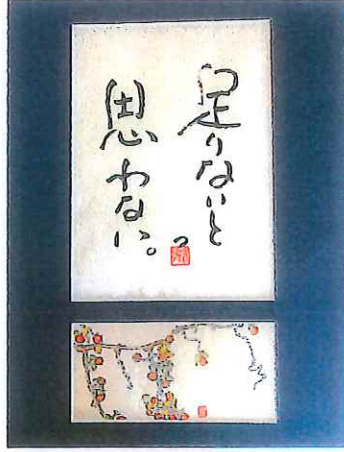 足りないと
思わない。